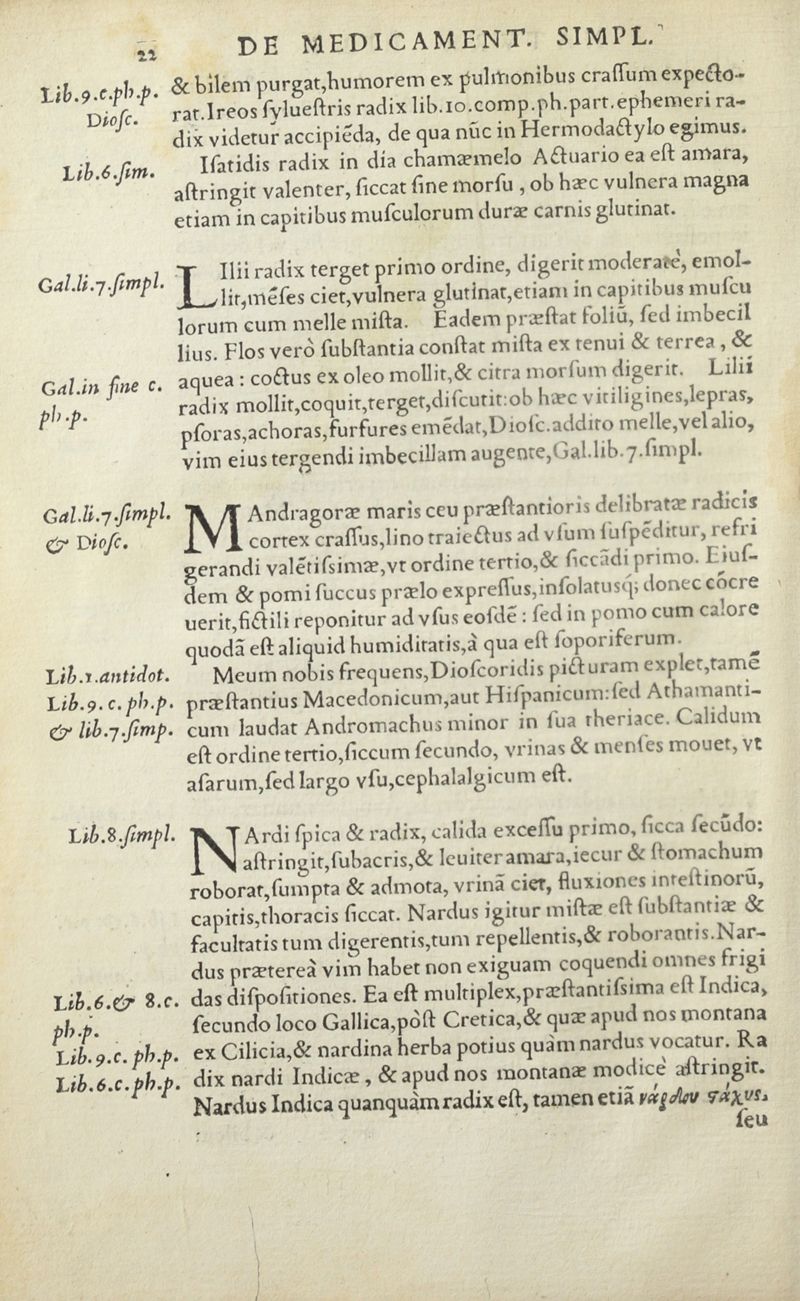 22
DE MEDICAMENT. SIMPL.
Lib.9.c.ph.p.
Diosc.
& bilem purgat,humorem ex pulmonibus crassum expecto-
rat.Ireos syluestris radix lib.10.comp.ph.part.ephemeri ra-
dix videtur accipiẽda, de qua nũc in Hermodactylo egimus.
Lib.6.sim.
Isatidis radix in dia chamæmelo Actuario ea est amara,
astringit valenter, siccat sine morsu , ob hæc vulnera magna
etiam in capitibus musculorum duræ carnis glutinat.
Gal.li.7.simpl.
LIlii radix terget primo ordine, digerit moderatè, emol-
lit,mẽses ciet,vulnera glutinat,etiam in capitibus muscu
lorum cum melle mista. Eadem præstat foliũ, sed imbecil
lius. Flos verò substantia constat mista ex tenui & terrea , &
Gal.in fine c.
ph.p.
aquea : coctus ex oleo mollit,& citra morsum digerit. Lilii
radix mollit,coquit,terget,discutit:ob hæc vitiligines,lepras,
psoras,achoras,furfures emẽdat,Diosc.addito melle,vel alio,
vim eius tergendi imbecillam augente,Gal.lib.7.simpl.
Gal.li.7.simpl.
& Diosc.
MAndragoræ maris ceu præstantioris delibratæ radicis
cortex crassus,lino traiectus ad vsum suspẽditur, refri
gerandi valẽtissimæ,vt ordine tertio,& siccãdi primo. Eius-
dem & pomi succus prælo expressus,insolatusq; donec cocre
uerit,fictili reponitur ad vsus eosdẽ : sed in pomo cum calore
quodã est aliquid humiditatis,à qua est soporiferum.
Lib.1.antidot.
Lib.9.c.ph.p.
& lib.7.simp.
Meum nobis frequens,Dioscoridis picturam explet,tamẽ
præstantius Macedonicum,aut Hispanicum:sed Athamanti-
cum laudat Andromachus minor in sua theriace. Calidum
est ordine tertio,siccum secundo, vrinas & menses mouet, vt
asarum,sed largo vsu,cephalalgicum est.
Lib.8.simpl.
NArdi spica & radix, calida excessu primo, sicca secũdo:
astringit,subacris,& leuiter amara,iecur & stomachum
roborat,sumpta & admota, vrinã ciet, fluxiones intestinorũ,
capitis,thoracis siccat. Nardus igitur mistæ est substantiæ &
facultatis tum digerentis,tum repellentis,& roborantis.Nar-
dus præterea vim habet non exiguam coquendi omnes frigi
Lib.6.& 8.c.
ph.p.
Lib.9.c.ph.p.
Lib.6.c.ph.p.
das dispositiones. Ea est multiplex,præstantissima est Indica,
secundo loco Gallica,pòst Cretica,& quæ apud nos montana
ex Cilicia,& nardina herba potius quàm nardus vocatur. Ra
dix nardi Indicæ , & apud nos montanæ modicè astringit.
Nardus Indica quanquàm radix est, tamen etiã νάρδου ςάχυς,
seu